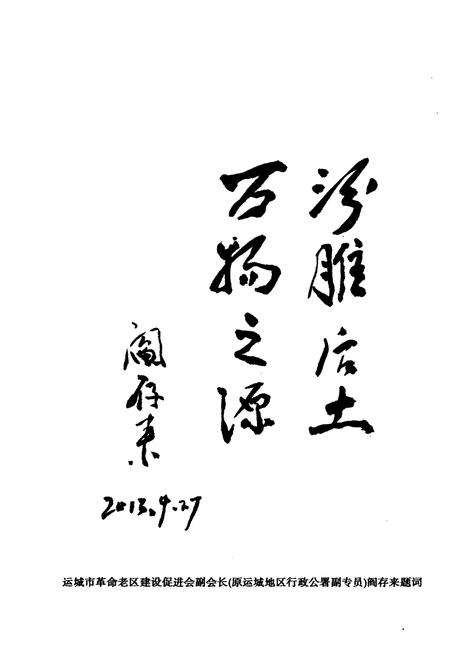 汾脽后土
万物之源
阎存来
2013.9.27
运城市革命老区建设促进会副会长(原运城地区行政公署副专员)阎存来题词